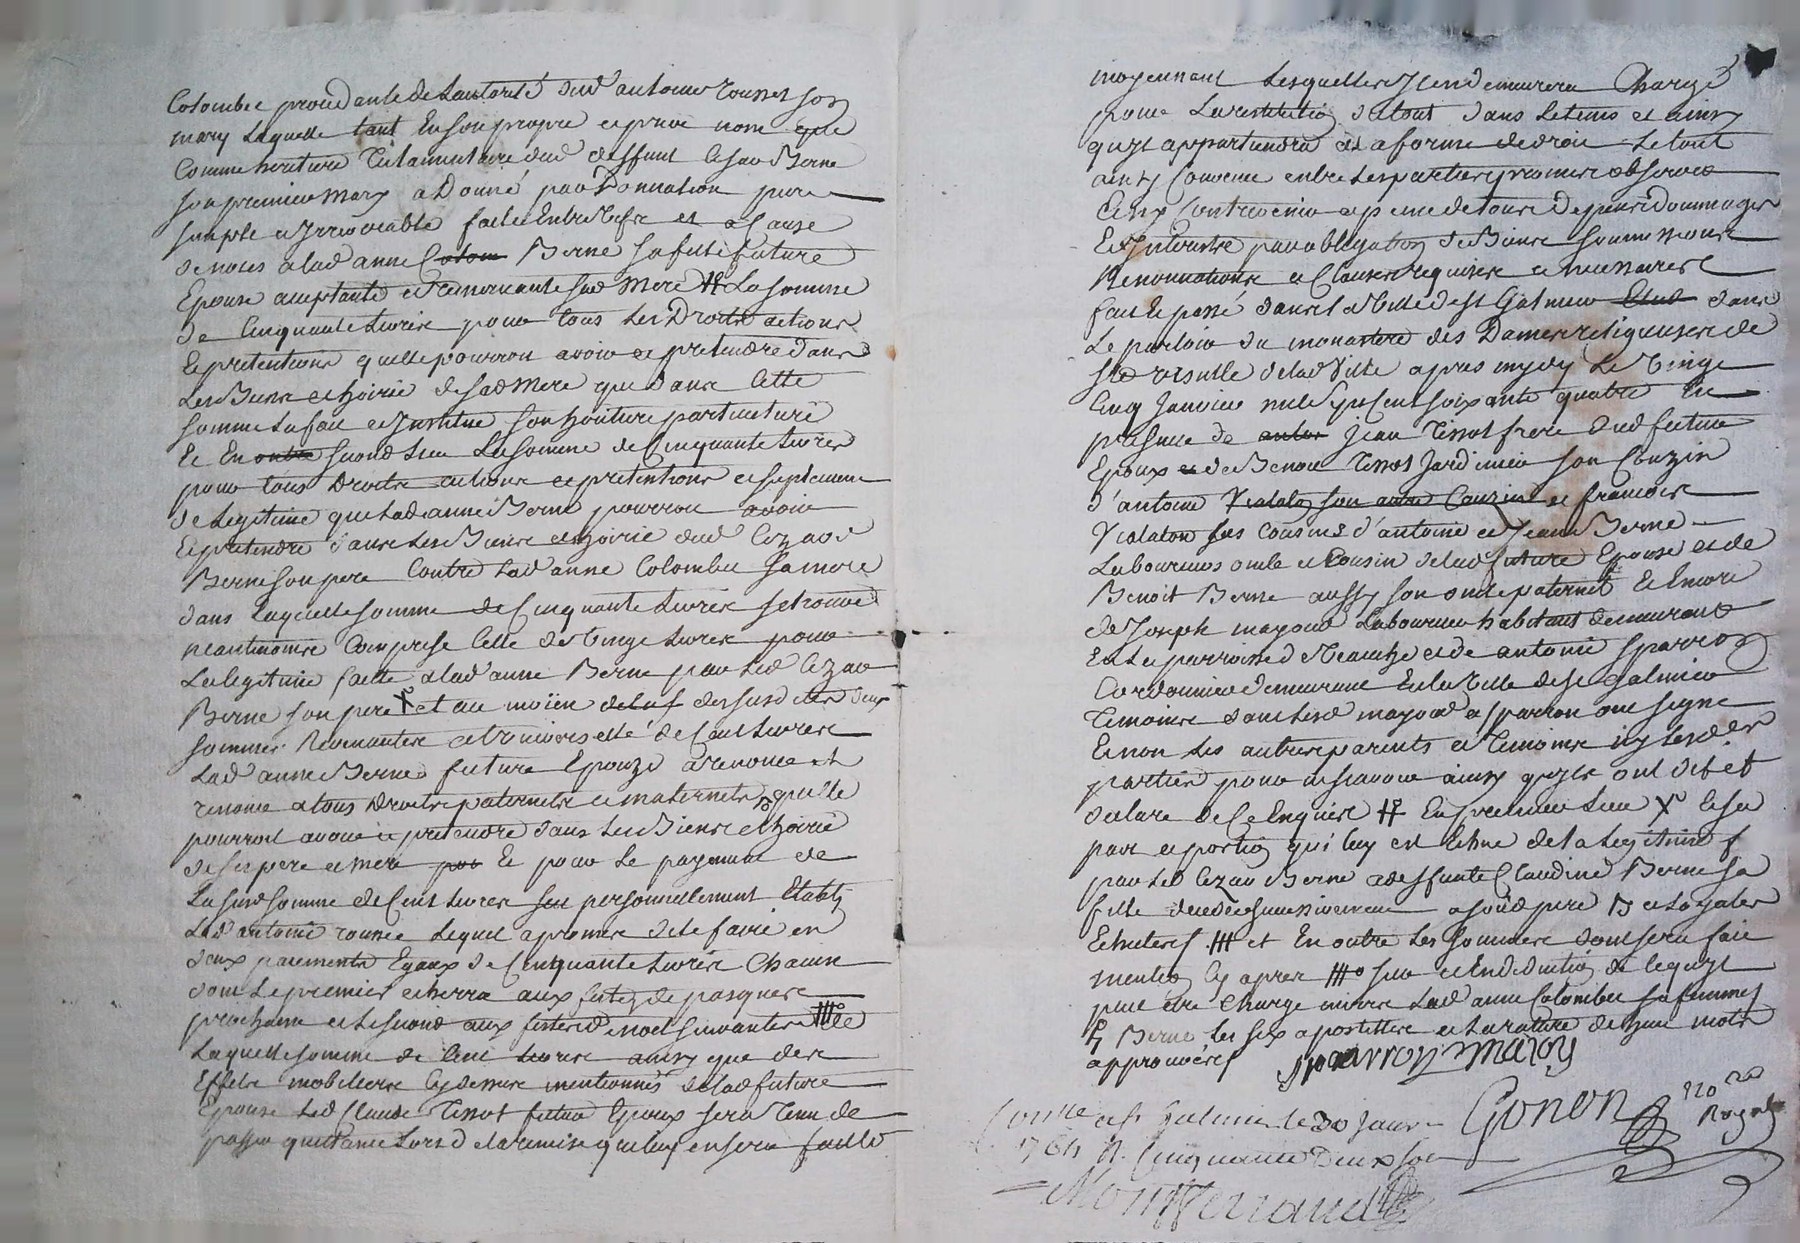 Colombee procedante de Lautorité dud antoine rousset son
mary Laquelle tant En son propre et privé nom que
Comme heritiere Testamentaire dud deffunt Cesar Berne
son premier mary a Donné par Donnation pure
simple et Irrevocable faite Entre vifs et a Cause
de noces a lad anne Colom Berne sa fille future
Epouse acceptante et remerciante sad Mere # La somme
de Cinquante Livres pour tous Les Droits actions
Et pretentions quelle pourroit avoir et pretendre dans
Les Biens et hoirie de sad Mere que dans Cette
somme La fait et Institue son heritiere particuliere
Et En outre second Lieu La somme de Cinquante Livres
pour tous Droits actions et pretentions et suplement
de Legitime que Lad anne Berne pourroit avoir
Et pretendre dans Les Biens et hoirie dud Cezard
Berne son pere Contre Lad anne Colombee sa mere
dans Laquelle somme de Cinquante Livres se trouve
neantmoins Comprise Celle de vingt Livres pour
La legitime faitte a lad anne Berne par Led Cezar
Berne son pere X et au moïen des susdittes deux
sommes Revenantes de Cent Livres
Lad anne Berne future Epouze a renoncé et
renonce a tous Droits paternels et maternels quelle
pourroit avoir et pretendre dans Les Biens et hoirie
de ses pere et mere pou Et pour Le payement de
La susd somme de Cent Livres sest personnellement Etably
Led antoine rousset Lequel a promis de le faire en
deux paiements Egaux de Cinquante Livres Chacun
dont Le premier echerra aux festes de pasques
prochaine et Le second aux festes de noel suivantes De
Laquelle somme de Cent Livres ainsy que des
Effets mobiliers Cy dessus mentionnés de lad future
Epouse Led Claude Tissot futur Epoux sera Tenu de
passer quittance Lors de la remise qui luy en sera faitte
moyennant Lesquelles Il en demeurera Chargé
pour La restitution de tout dans Le tems et ainsy
quyl appartiendra et a forme de droit Le tout
ainsy Convenu entre Les parties promis observer
Et Interestre par obligation de Biens soumissions
Renonnations et Clauses requises et necessaires
fait Et passé dans la Ville de St Galmier Etud dans
Le parloir du monastere des Dames religieuses de
Ste ursulle de lad Ville apres mydy Le Vingt
Cinq Janvier mil sept Cent soixante quatre En
presence de antoi Jean Tissot frere dud futur
Epoux et de Benoit Tissot Jardinier son Couzin
d'antoine Vialaton son autre Couzin et francois
Vialaton ses cousins d'antoine et Jean Berne
Laboureurs oncle et Cousin de lad future Epouse et de
Benoit Berne aussy son oncle paternel Et Encore
de Joseph mayoud Laboureur habitant demeurant
En La parroisse de Veauche et de antoine sparron
Cordonnier demeurant En La Ville de St Galmier
Temoins dont Lesd mayoud et sparron ont signé
Et non Les autres parents et Temoins ny Lesd
parties pour ne scavoir ainsy quyls ont dit et
declaré de Ce Enquis # En premier Lieu X Et sa
part et portion qui luy est Echue de la Legitime f
par Led Cezar Berne a deffunte Claudine Berne sa
fille decedée a sond pere
Et en outre Les sommes dont sera fait
mention Cy apres
peut etre Chargé envers Lad anne Colombee sa femme
Berne Les six apostilles et La rature de huit mots
approuvées sparron mayou
Conlle a St Galmier le 30 Janv Gonon no re Royal
1764 R. Cinquante Deux sols
Montferrand